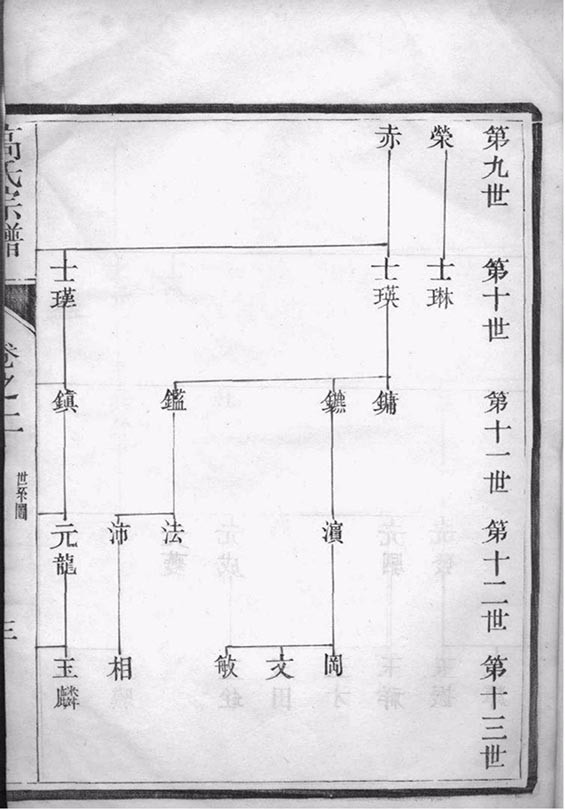 第九世
榮
赤
第十世
士琳
士瑛
士瑾
第十一世
鏞
鑑
鎮
第十二世
濵
法
沛
元龍
第十三世
岡
文
敏
相
玉麟
高氏宗譜
卷之二
世系圖
三